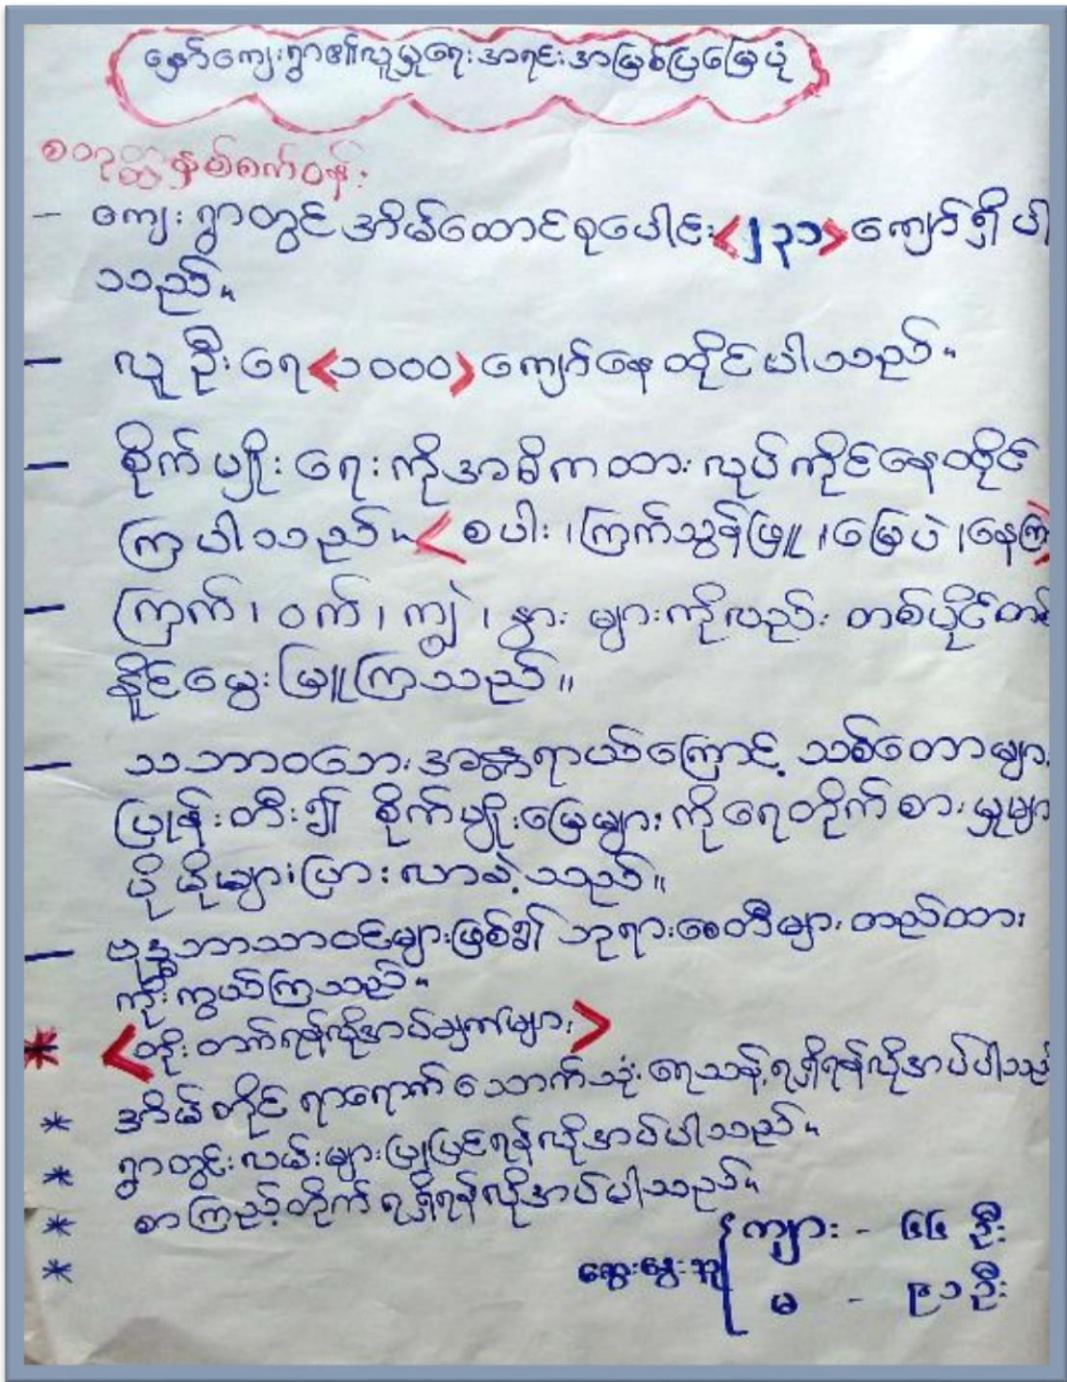 နှော်ကျေးရွာ၏လူမှုရေးအရင်းအမြစ်ပြမြေပုံ
စတုတ္ထနှစ်ဝက်ဝန်း
- ကျေးရွာတွင်အိမ်ထောင်စုပေါင်း<၂၃၁>ကျော်ရှိပါ
သည်။
- လူဦးရေ<၁၀၀၀>ကျော်နေထိုင်ပါသည်။
- စိုက်ပျိုးရေးကိုအဓိကထားလုပ်ကိုင်နေထိုင်
ကြပါသည်။<စပါး၊ကြက်သွန်ဖြူ၊မြေပဲ၊နေကြာ>
- ကြက်၊ဝက်၊ကျွဲ၊နွားများကိုလည်းတစ်ပိုင်တစ်
နိုင်မွေးမြူကြသည်။
- သဘာဝဘေးအန္တရာယ်ကြောင့်သစ်တောများ
ပြုန်းတီး၍စိုက်ပျိုးမြေများကိုရေတိုက်စားမှုများ
ပိုမိုများပြားလာခဲ့သည်။
- ဗုဒ္ဓဘာသာဝင်များဖြစ်၍ဘုရားစေတီများတည်ထား
ကိုးကွယ်ကြသည်။
* <တိုးတက်ရန်လိုအပ်ချက်များ>
* အိမ်တိုင်ရာရောက်သောက်သုံးရေသန့်ရရှိရန်လိုအပ်ပါသည်
* ရွာတွင်းလမ်းများပြုပြင်ရန်လိုအပ်ပါသည်။
* စာကြည့်တိုက်ရရှိရန်လိုအပ်ပါသည်။
*
ဆွေးနွေးသူ { ကျား - ၄၄ ဦး
မ - ၉၁ ဦး